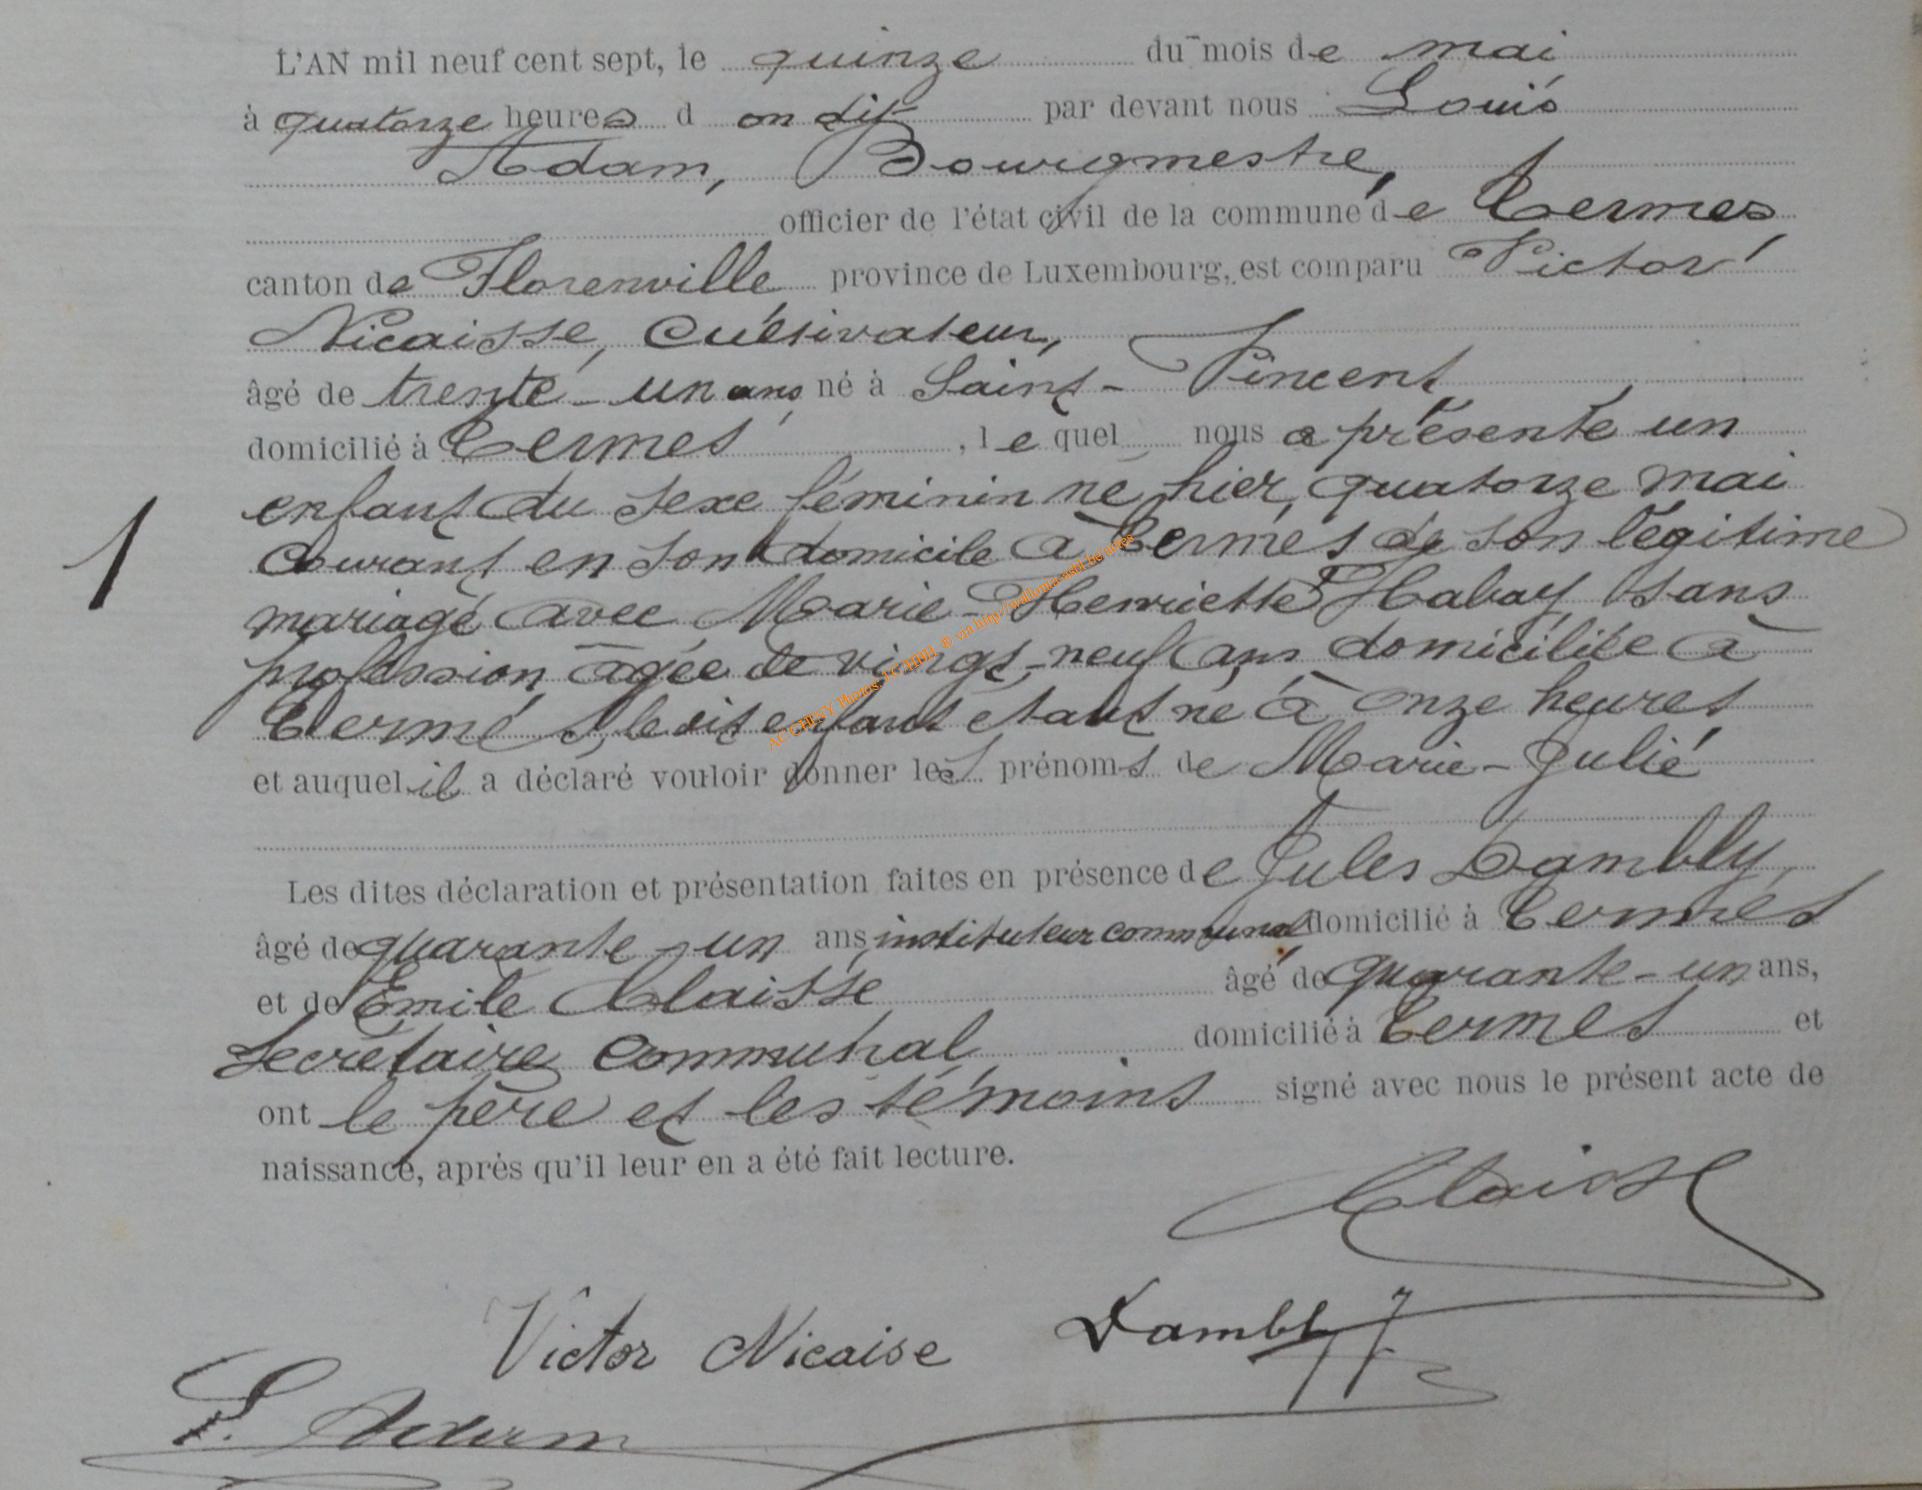 L'AN mil neuf cent sept, le quinze du mois de mai
à quatorze heures d on dit par devant nous Louis
Adam, Bourgmestre,
officier de l'état civil de la commune de Termes,
canton de Florenville province de Luxembourg, est comparu Victor
Nicaisse, cultivateur,
âgé de trente-un ans né à Saint-Vincent,
domicilié à Termes, lequel nous a présenté un
enfant du sexe féminin né hier, quatorze mai
courant en son domicile à Termes de son légitime
mariage avec Marie-Henriette Habay, sans
profession, âgée de vingt-neuf ans, domiciliée à
Termes, ledit enfant étant né à onze heures
et auquel il a déclaré vouloir donner les prénoms de Marie-Julie
Les dites déclaration et présentation faites en présence de Jules Dambly,
âgé de quarante-un ans, instituteur communal domicilié à Termes
et de Emile Claisse, âgé de quarante-un ans,
secrétaire communal, domicilié à Termes et
1
ont le père et les témoins signé avec nous le présent acte de
naissance, après qu'il leur en a été fait lecture.
Claisse
Victor Nicaise Dambly
L. Adam